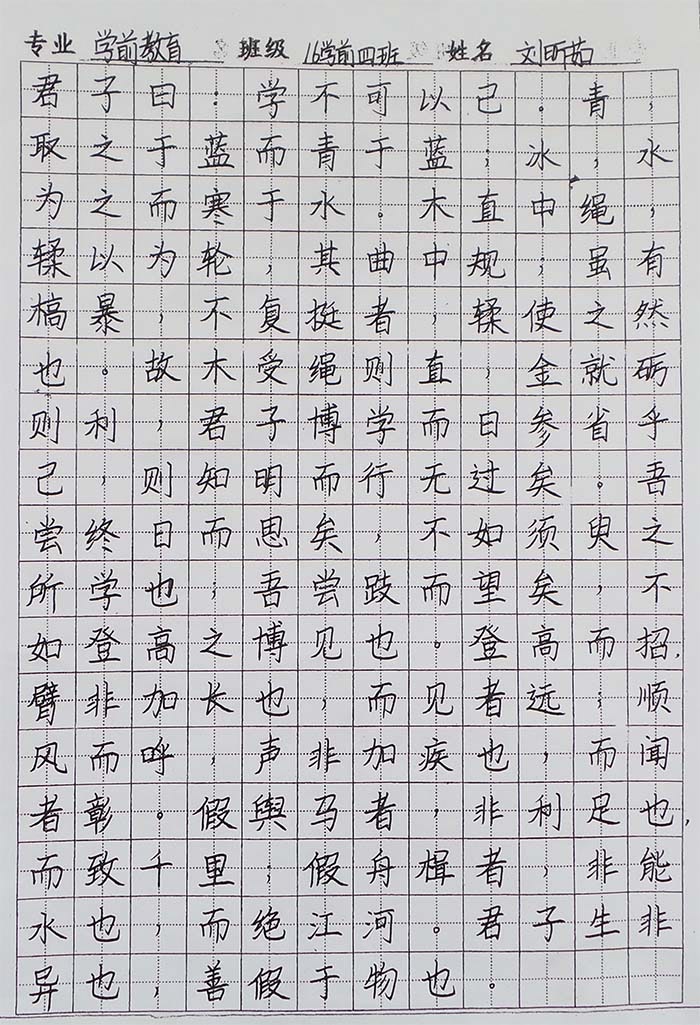 专业 学前教育 班级 16学前四班 姓名 刘昕茹
君子曰：学不可以已。青，
取之于蓝而青于蓝；冰，水
为之而寒于水。木直中绳，
輮以为轮，其曲中规；虽有
槁暴，不复挺者，輮使之然
也。故木受绳则直，金就砺
则利，君子博学而日参省乎
己，则知明而行无过矣。吾
尝终日而思矣，不如须臾之
所学也；吾尝跂而望矣，不
如登高之博见也。登高而招，
臂非加长也，而见者远；顺
风而呼，声非加疾也，而闻
者彰。假舆马者，非利足也，
而致千里；假舟楫者，非能
水也，而绝江河。君子生非
异也，善假于物也。